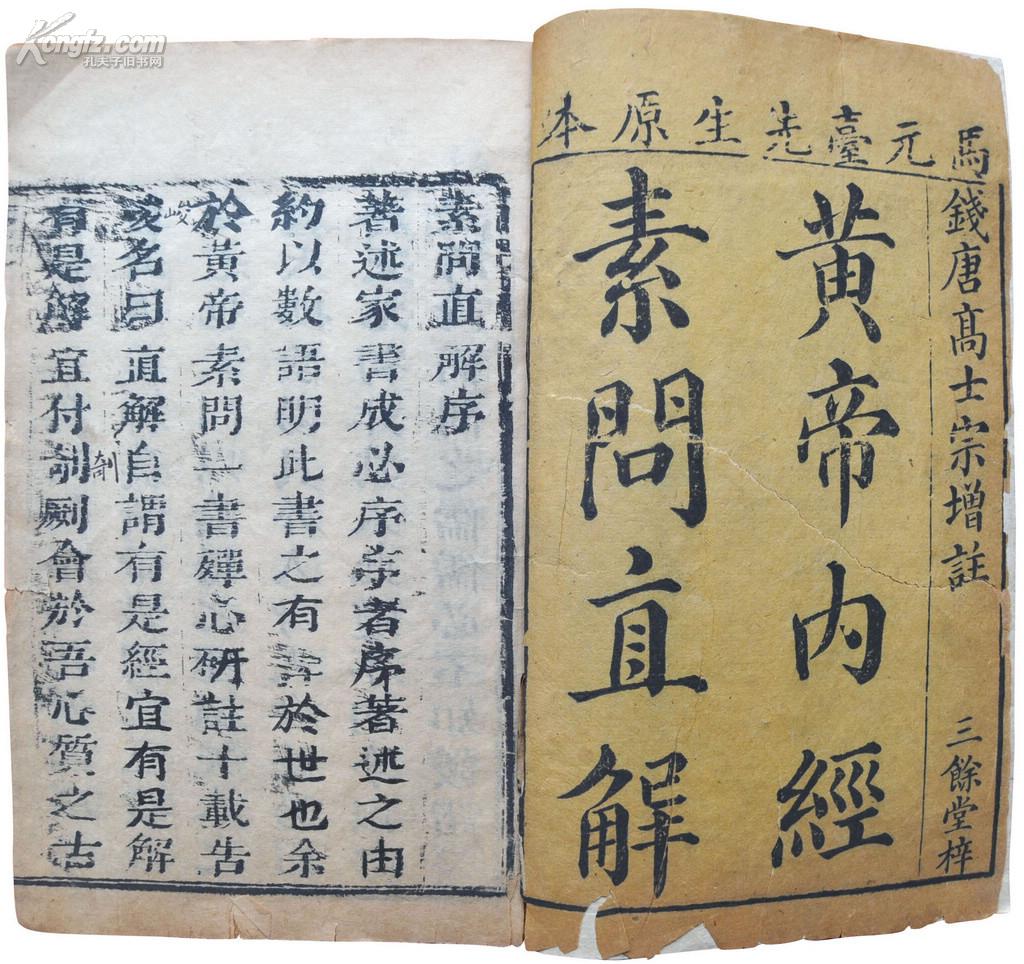 Kongfz.com
孔夫子旧书网
馬元臺先生原本
錢唐髙士宗增註
三餘堂梓
黃帝內經
素問直解
素問直解序
著述家書成必序序者序著述之由
約以數語明此書之有 於世也余
於黃帝素問一書殫心硏註十載告
峻
名曰直解自謂有是經宜有是解
有是解宜付剞劂會於吾心質之古
剞